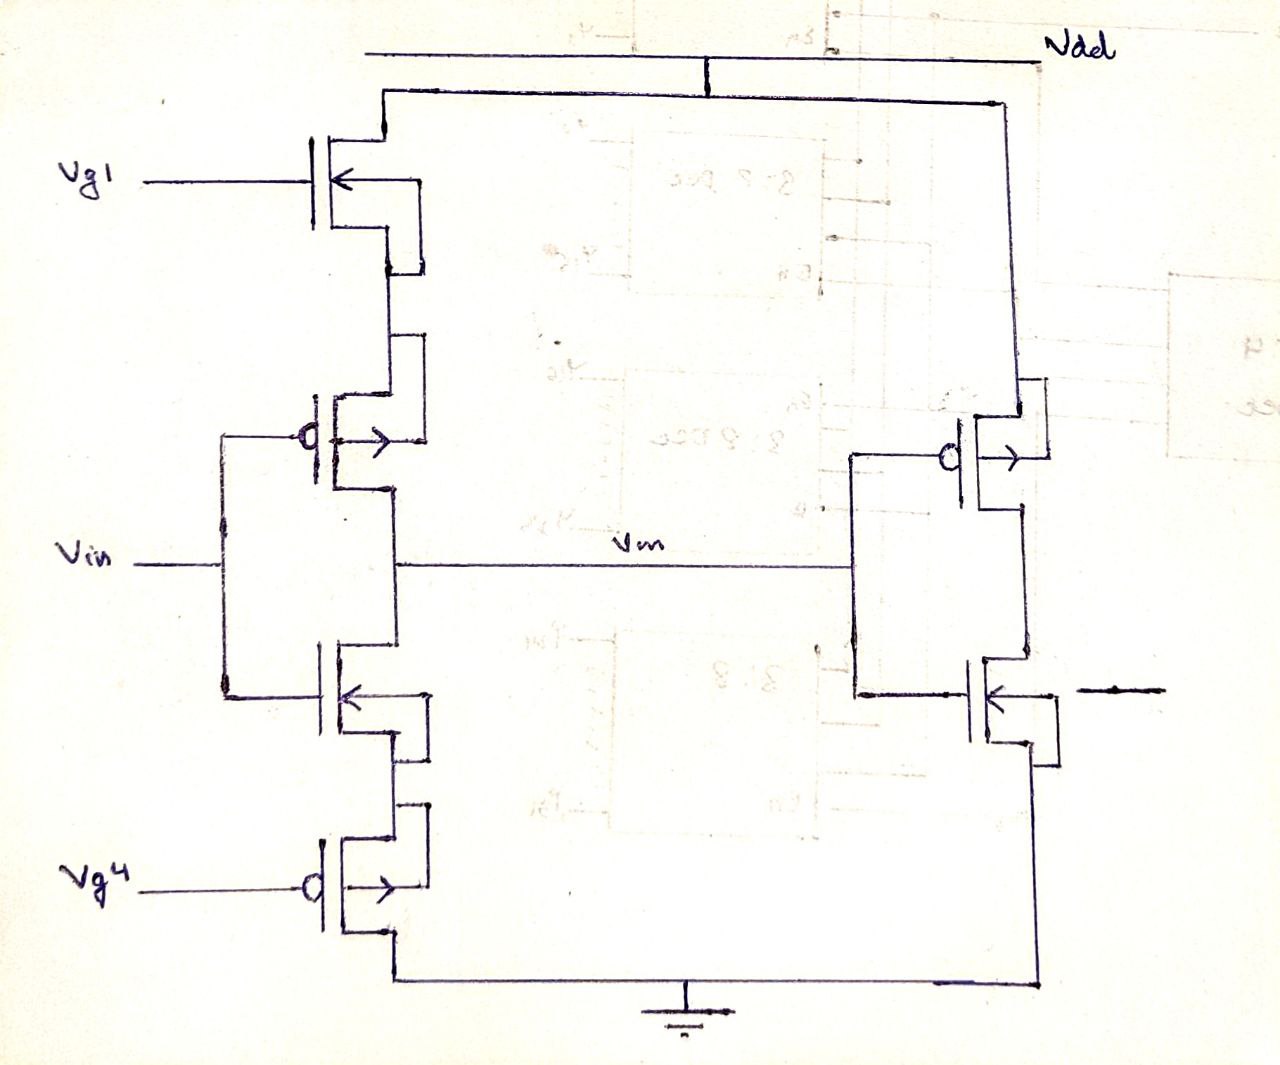 Vdd
Vg1
Vin
Vm
Vg4